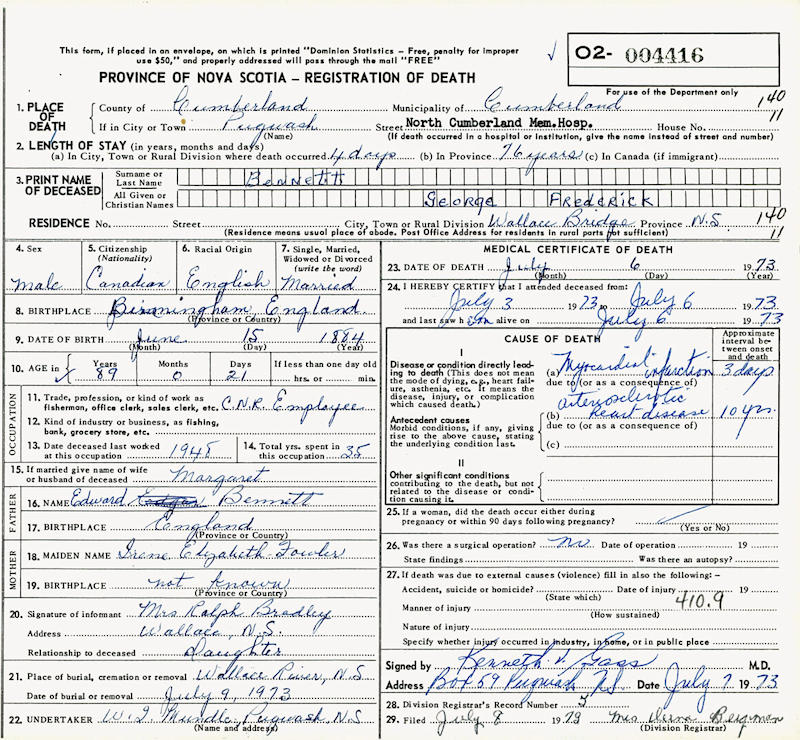 This form, if placed in an envelope, on which is printed "Dominion Statistics – Free, penalty for improper
use $50," and properly addressed will pass through the mail "FREE"
O2- 004416
PROVINCE OF NOVA SCOTIA – REGISTRATION OF DEATH
For use of the Department only
1. PLACE OF DEATH County of Cumberland Municipality of Cumberland 140
If in City or Town Pugwash (Name) Street North Cumberland Mem.Hosp. House No. 11
(If death occurred in a hospital or institution, give the name instead of street and number)
2. LENGTH OF STAY (in years, months and days)
(a) In City, Town or Rural Division where death occurred 4 days (b) In Province 76 years (c) In Canada (if immigrant)
3. PRINT NAME OF DECEASED Surname or Last Name BENNETT
All Given or Christian Names GEORGE FREDERICK
RESIDENCE No. Street City, Town or Rural Division Wallace Bridge Province N.S. 140
(Residence means usual place of abode. Post Office Address for residents in rural parts not sufficient) 11
4. Sex Male
5. Citizenship (Nationality) Canadian
6. Racial Origin English
7. Single, Married, Widowed or Divorced (write the word) Married
8. BIRTHPLACE Birmingham, England
(Province or Country)
9. DATE OF BIRTH June 15 1884
(Month) (Day) (Year)
10. AGE in Years 89 Months 0 Days 21 If less than one day old hrs. or min.
OCCUPATION
11. Trade, profession, or kind of work as
fisherman, office clerk, sales clerk, etc. C.N.R. Employee
12. Kind of industry or business, as fishing,
bank, grocery store, etc.
13. Date deceased last worked at this occupation 1948
14. Total yrs. spent in this occupation 35
15. If married give name of wife
or husband of deceased Margaret
FATHER
16. NAME Edward Bennett
17. BIRTHPLACE England
(Province or Country)
MOTHER
18. MAIDEN NAME Irene Elizabeth Fowler
19. BIRTHPLACE not known
(Province or Country)
20. Signature of informant Mrs Ralph Bradley
Address Wallace, N.S.
Relationship to deceased Daughter
21. Place of burial, cremation or removal Wallace River, N.S
Date of burial or removal July 9, 1973
22. UNDERTAKER W. I. Mundle, Pugwash, N.S
(Name and address)
MEDICAL CERTIFICATE OF DEATH
23. DATE OF DEATH July 6 1973
(Month) (Day) (Year)
24. I HEREBY CERTIFY that I attended deceased from:
July 3 1973 to July 6 1973
and last saw him alive on July 6 1973
CAUSE OF DEATH
Approximate interval between onset and death
I
Disease or condition directly leading to death (This does not mean the mode of dying, e.g., heart failure, asthenia, etc. It means the disease, injury, or complication which caused death.)
(a) Myocardial infarction 3 days
due to (or as a consequence of)
Antecedent causes
Morbid conditions, if any, giving rise to the above cause, stating the underlying condition last.
(b) arteriosclerotic heart disease 10 yrs.
due to (or as a consequence of)
(c)
II
Other significant conditions
contributing to the death, but not related to the disease or condition causing it.
25. If a woman, did the death occur either during
pregnancy or within 90 days following pregnancy?
(Yes or No)
26. Was there a surgical operation? No Date of operation 19
State findings Was there an autopsy?
27. If death was due to external causes (violence) fill in also the following: –
Accident, suicide or homicide? Date of injury 19
(State which) 410.9
Manner of injury
(How sustained)
Nature of injury
Specify whether injury occurred in industry, in home, or in public place
Signed by Kenneth V. Gass M.D.
Address Box 59 Pugwash N.S. Date July 7 1973
28. Division Registrar's Record Number 5
29. Filed July 8 1973 Mrs Beigman
(Division Registrar)